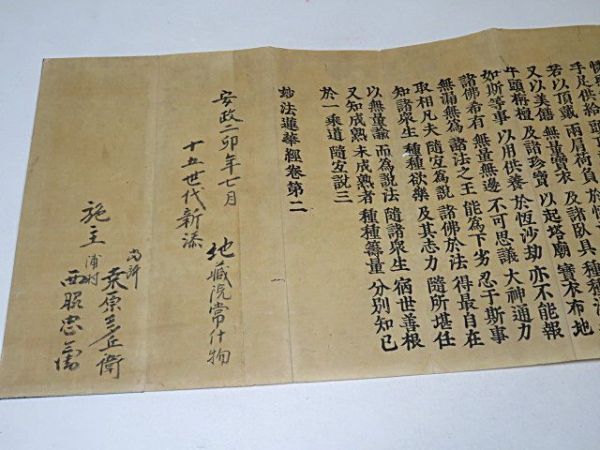 手足供給 頭頂
若以頂戴 兩肩荷負
又以美饍 無量寶衣 及諸臥具 種種
牛頭栴檀 及諸珍寶 以起塔廟 寶衣布地
如斯等事 以用供養 於恆沙劫 亦不能報
諸佛希有 無量無邊 不可思議 大神通力
無漏無爲 諸法之王 能爲下劣 忍于斯事
取相凡夫 隨宜爲說 諸佛於法 得最自在
知諸眾生 種種欲樂 及其志力 隨所堪任
以無量喻 而爲說法 隨諸眾生 宿世善根
又知成熟 未成熟者 種種籌量 分別知已
於一乘道 隨宜說三
妙法蓮華經卷第二
安政二卯年七月
地藏院常什物
十五世代新添
施主